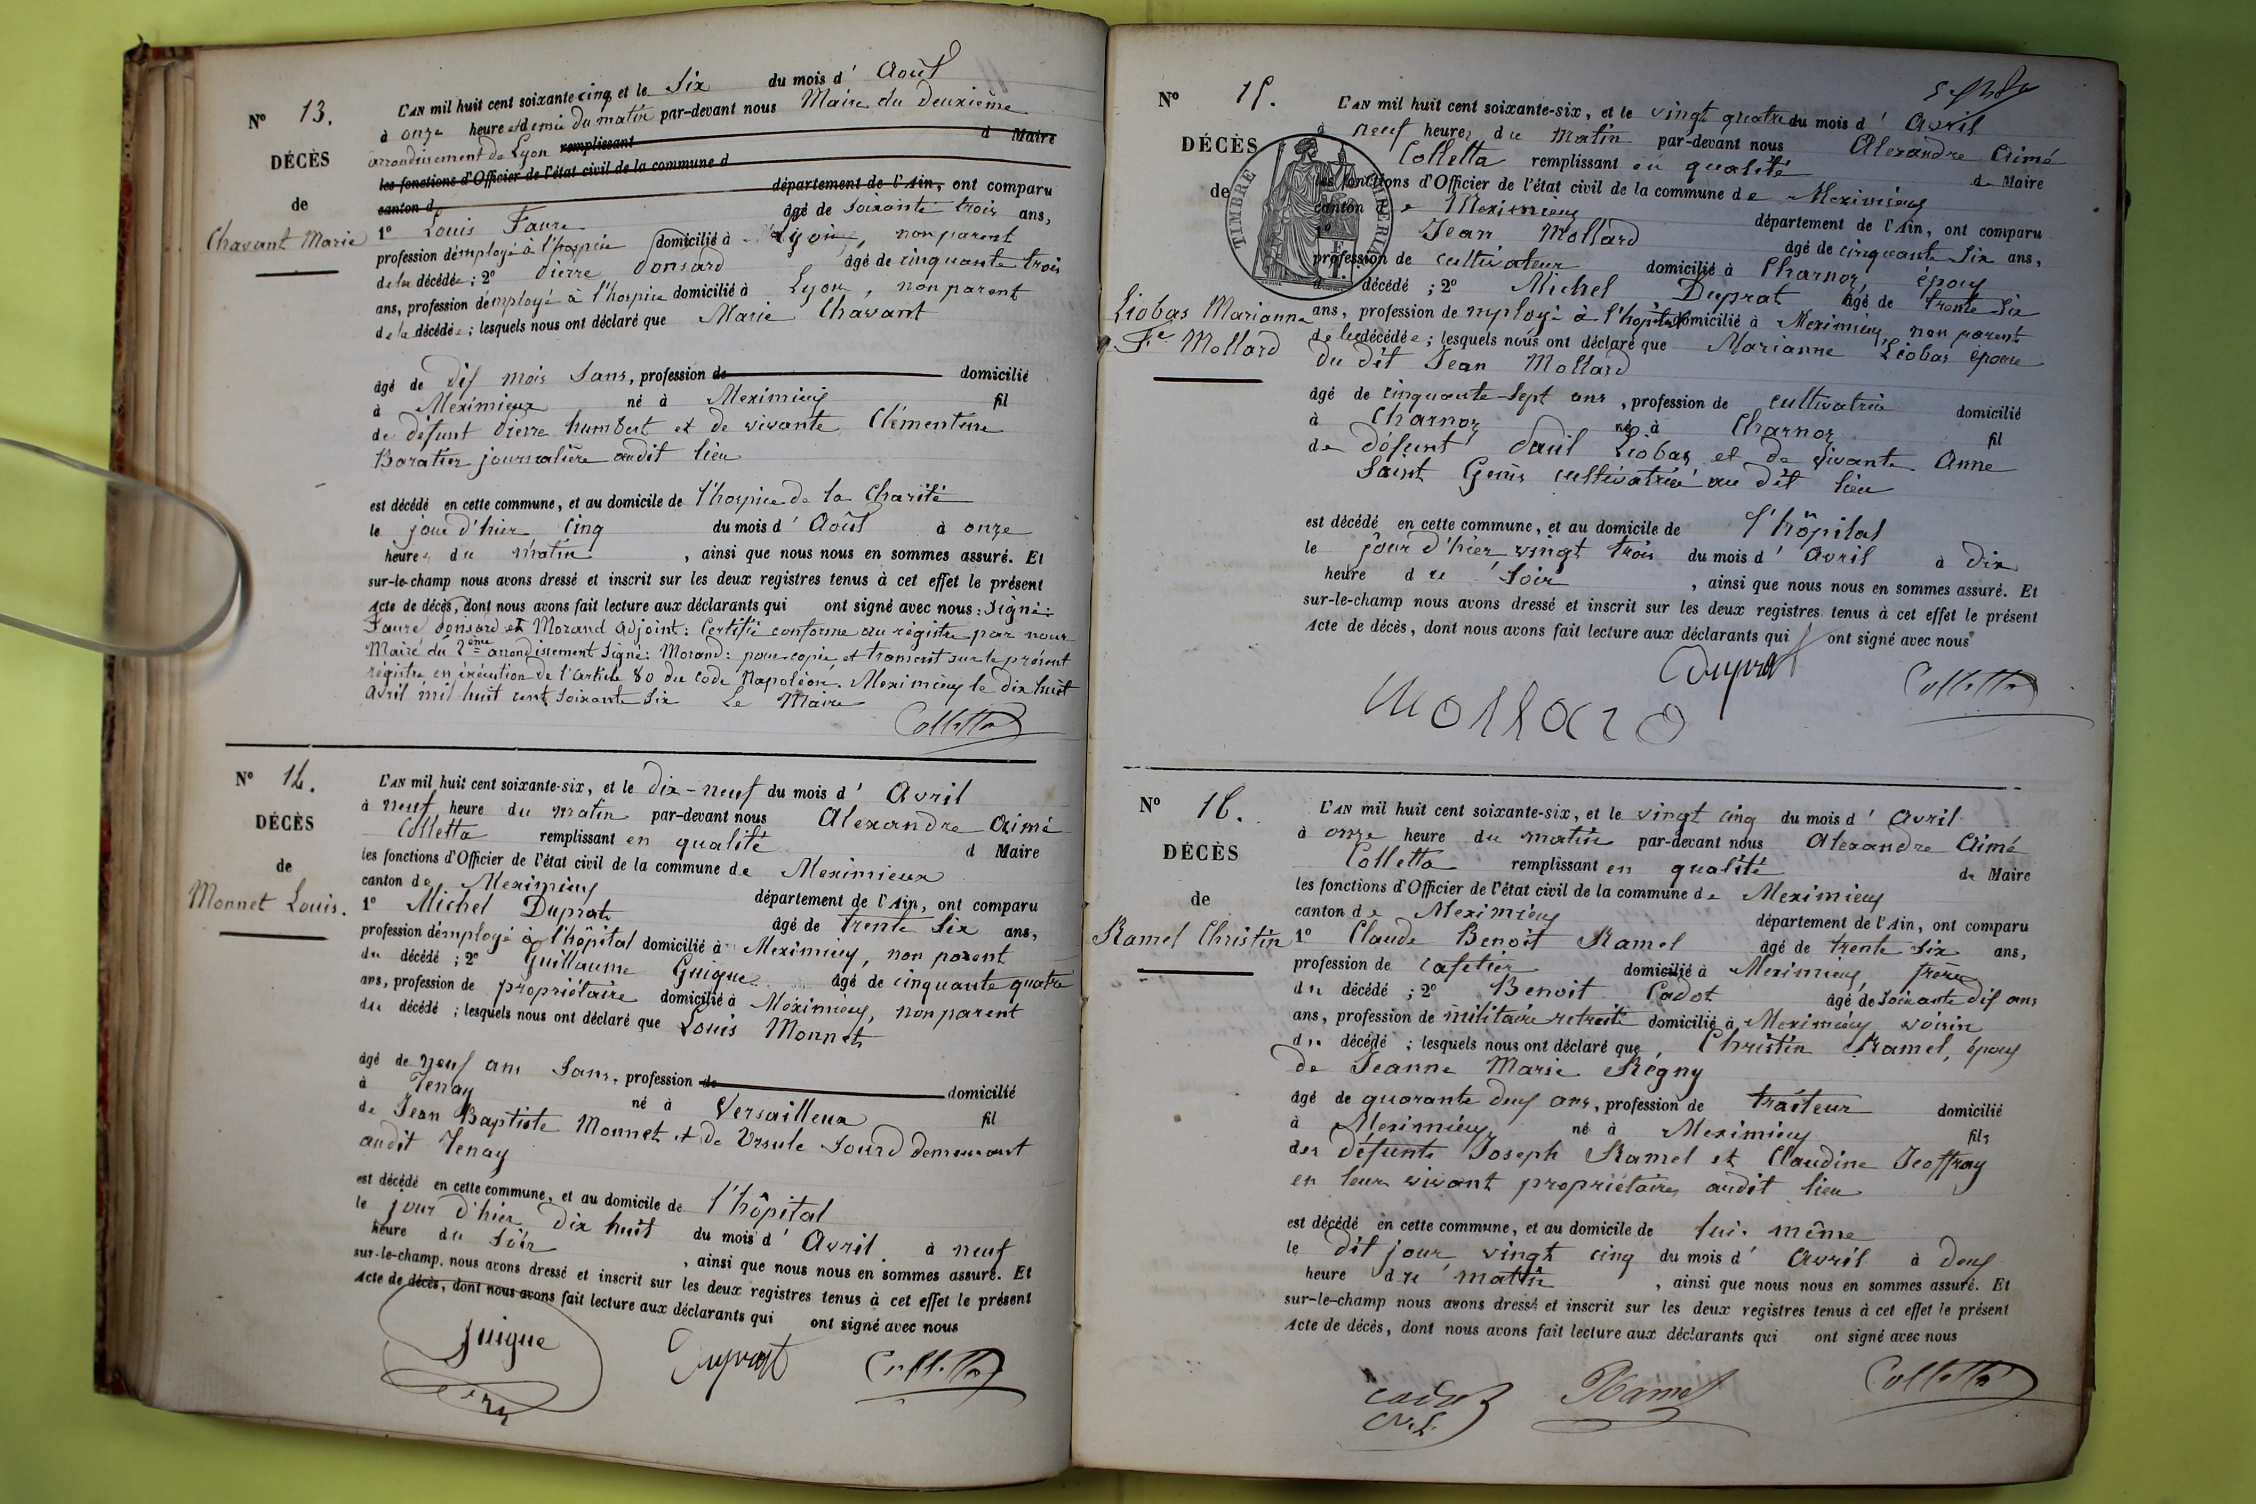 N° 13.
DÉCÈS
de
Chavant Marie
L'AN mil huit cent soixante cinq et le Six du mois d' Août
à onze heure et demie du matin par-devant nous Maire du deuxième
arrondissement de Lyon remplissant d Maire
les fonctions d'Officier de l'état civil de la commune d
canton d département de l'Ain, ont comparu
1° Louis Faure âgé de soixante trois ans,
profession d'employé à l'hospice domicilié à Lyon, non parent
de la décédée ; 2° Pierre Ponsard âgé de cinquante trois
ans, profession d'employé à l'hospice domicilié à Lyon, non parent
de la décédée ; lesquels nous ont déclaré que Marie Chavant
âgé de dix mois Sans, profession de domicilié
à Meximieux né à Meximieux fil
de défunt Pierre humbert et de vivante Clémentine
Boratier journalière audit lieu
est décédé en cette commune, et au domicile de l'hospice de la Charité
le jour d'hier cinq du mois d' Août à onze
heures du matin, ainsi que nous nous en sommes assuré. Et
sur-le-champ nous avons dressé et inscrit sur les deux registres tenus à cet effet le présent
Acte de décès, dont nous avons fait lecture aux déclarants qui ont signé avec nous : Signé :
Faure Ponsard et Morand Adjoint : Certifié conforme au régistre par nous
Maire du 2ème arrondissement Signé : Morand : pour copie et transcrit sur le présent
régistre en éxécution de l'article 80 du Code Napoléon. Meximieux le dix huit
avril mil huit cent soixante six Le Maire
Colletta
N° 14.
DÉCÈS
de
Monnet Louis.
L'AN mil huit cent soixante-six, et le dix-neuf du mois d' Avril
à neuf heure du matin par-devant nous Alexandre Aimé
Colletta remplissant en qualité d Maire
les fonctions d'Officier de l'état civil de la commune de Meximieux
canton de Meximieux département de l'Ain, ont comparu
1° Michel Duprat âgé de trente Six ans,
profession d'employé à l'hôpital domicilié à Meximieux, non parent
du décédé ; 2° Guillaume Guigue âgé de cinquante quatre
ans, profession de propriétaire domicilié à Meximieux, non parent
du décédé ; lesquels nous ont déclaré que Louis Monnet
âgé de neuf ans Sans, profession de domicilié
à Tenay né à Versailleux fil
de Jean Baptiste Monnet et de Ursule Sourd demeurant
audit Tenay
est décédé en cette commune, et au domicile de l'hôpital
le jour d'hier dix huit du mois d' Avril à neuf
heure du Soir, ainsi que nous nous en sommes assuré. Et
sur-le-champ, nous avons dressé et inscrit sur les deux registres tenus à cet effet le présent
Acte de décès, dont nous avons fait lecture aux déclarants qui ont signé avec nous
Guigue Duprat Colletta
N° 15.
DÉCÈS
de
TIMBRE IMPERIAL
Liobas Marianne
Fe Mollard
L'AN mil huit cent soixante-six, et le vingt quatre du mois d' Avril
à neuf heures du matin par-devant nous Alexandre Aimé
Colletta remplissant en qualité de Maire
les fonctions d'Officier de l'état civil de la commune de Meximieux
canton de Meximieux département de l'Ain, ont comparu
1° Jean Mollard âgé de cinquante Six ans,
profession de cultivateur domicilié à Charnoz, époux
d décédé ; 2° Michel Duprat âgé de trente Six
ans, profession de mployé à l'hôpital domicilié à Meximieux non parent
de la décédée ; lesquels nous ont déclaré que Marianne Liobas épouse
du dit Jean Mollard
âgé de cinquante-Sept ans, profession de cultivatrice domicilié
à Charnoz né à Charnoz fil
de défunt Paul Liobas et de vivante Anne
Saint Genis cultivatrice au dit lieu
est décédé en cette commune, et au domicile de l'hôpital
le jour d'hier vingt trois du mois d' Avril à dix
heure du Soir, ainsi que nous nous en sommes assuré. Et
sur-le-champ nous avons dressé et inscrit sur les deux registres tenus à cet effet le présent
Acte de décès, dont nous avons fait lecture aux déclarants qui ont signé avec nous
Duprat
Mollard Colletta
N° 16.
DÉCÈS
de
Ramel Christin
L'AN mil huit cent soixante-six, et le vingt cinq du mois d' Avril
à onze heure du matin par-devant nous Alexandre Aimé
Colletta remplissant en qualité de Maire
les fonctions d'Officier de l'état civil de la commune de Meximieux
canton de Meximieux département de l'Ain, ont comparu
1° Claude Benoit Ramel âgé de trente Six ans,
profession de cafetier domicilié à Meximieux, frère
du décédé ; 2° Benoit Cadot âgé de soixante dix ans
ans, profession de militaire retraité domicilié à Meximieux voisin
du décédé ; lesquels nous ont déclaré que, Christin Ramel, époux
de Jeanne Marie Régny
âgé de quarante deux ans, profession de traiteur domicilié
à Meximieux né à Meximieux fils
des défunts Joseph Ramel et Claudine Jeoffray
en leur vivant propriétaires audit lieu
est décédé en cette commune, et au domicile de lui-même
le dit jour vingt cinq du mois d' Avril à deux
heure du matin, ainsi que nous nous en sommes assuré. Et
sur-le-champ nous avons dressé et inscrit sur les deux registres tenus à cet effet le présent
Acte de décès, dont nous avons fait lecture aux déclarants qui ont signé avec nous
Cadot Ramel Colletta